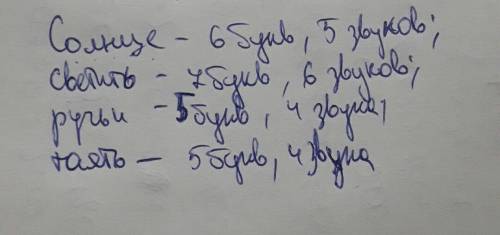 Солнце - 6 букв, 5 звуков;
светить - 7 букв, 6 звуков;
ручьи - 5 букв, 4 звука;
таять - 5 букв, 4 звука